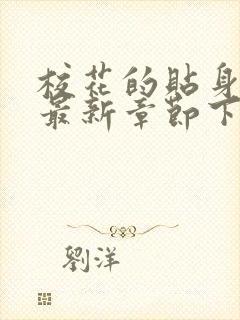 校花的貼身
最新章節下
劉洋